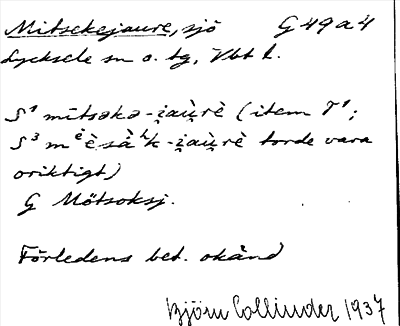 Mitsekejaure, sjö G 49 a 4
Lycksele sn o. tg, Vbt l.
S¹ mītsəkə-i̯au̯rè (item T¹;
S³ mè̀sàʰk-i̯au̯rè torde vara
oriktigt)
G Mötsoksj.
Förledens bet. okänd
Björn Collinder 1937